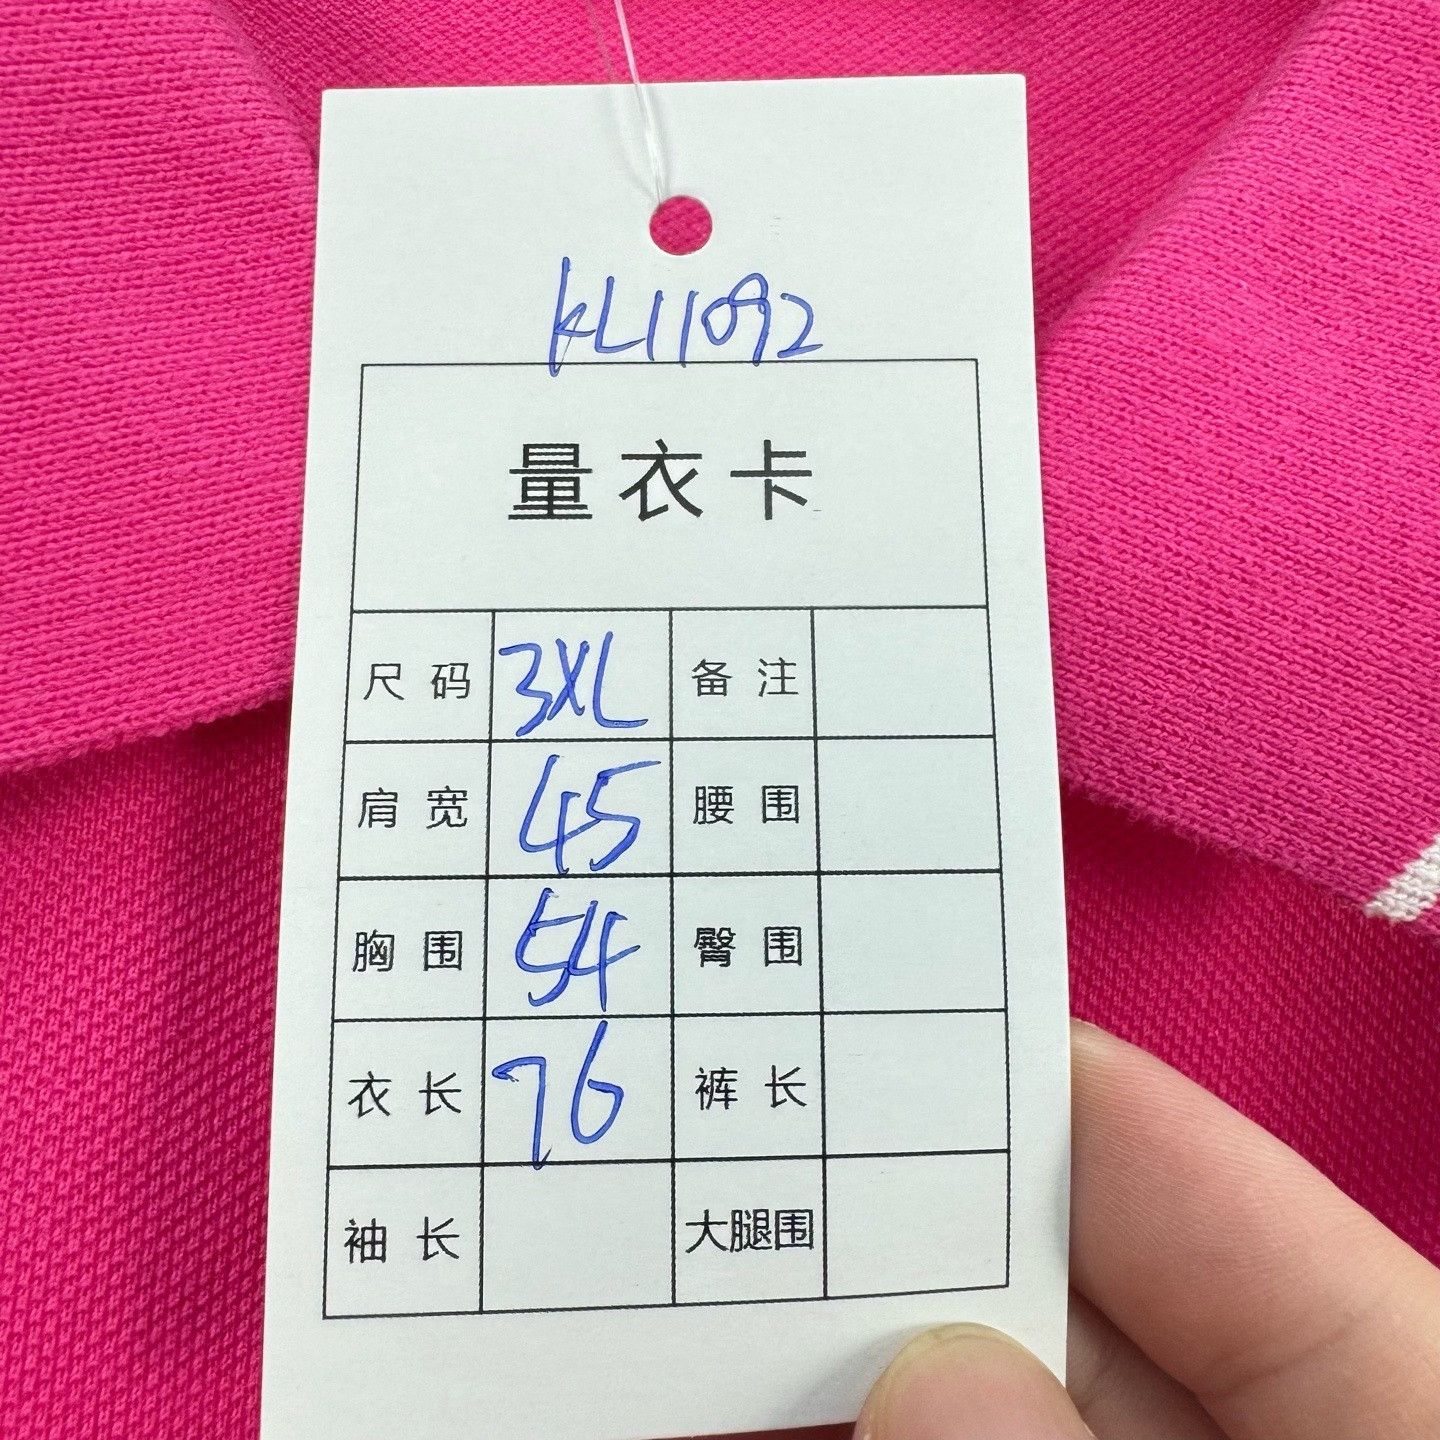 KL11092
量衣卡
尺码 3XL 备注
肩宽 45 腰围
胸围 54 臀围
衣长 76 裤长
袖长 大腿围